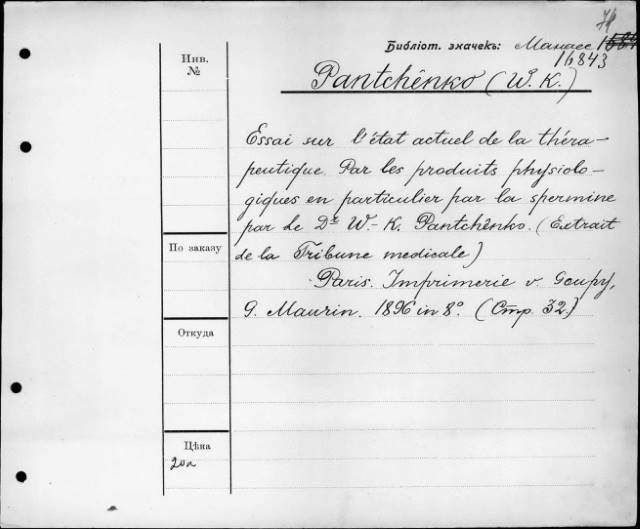 71
Библіот. значекъ: Манасе
16843
Инв.
№
Pantchénko (W. K.)
Essai sur l'état actuel de la théra-
peutique. Par les produits physiolo-
giques en particulier par la spermine
par le Dr W.-K. Pantchénko. (Extrait
de la Tribune medicale)
По заказу
Paris. Imprimerie v. Goupy,
G. Maurin. 1896 in 8°. (Стр. 32.)
Откуда
Цѣна